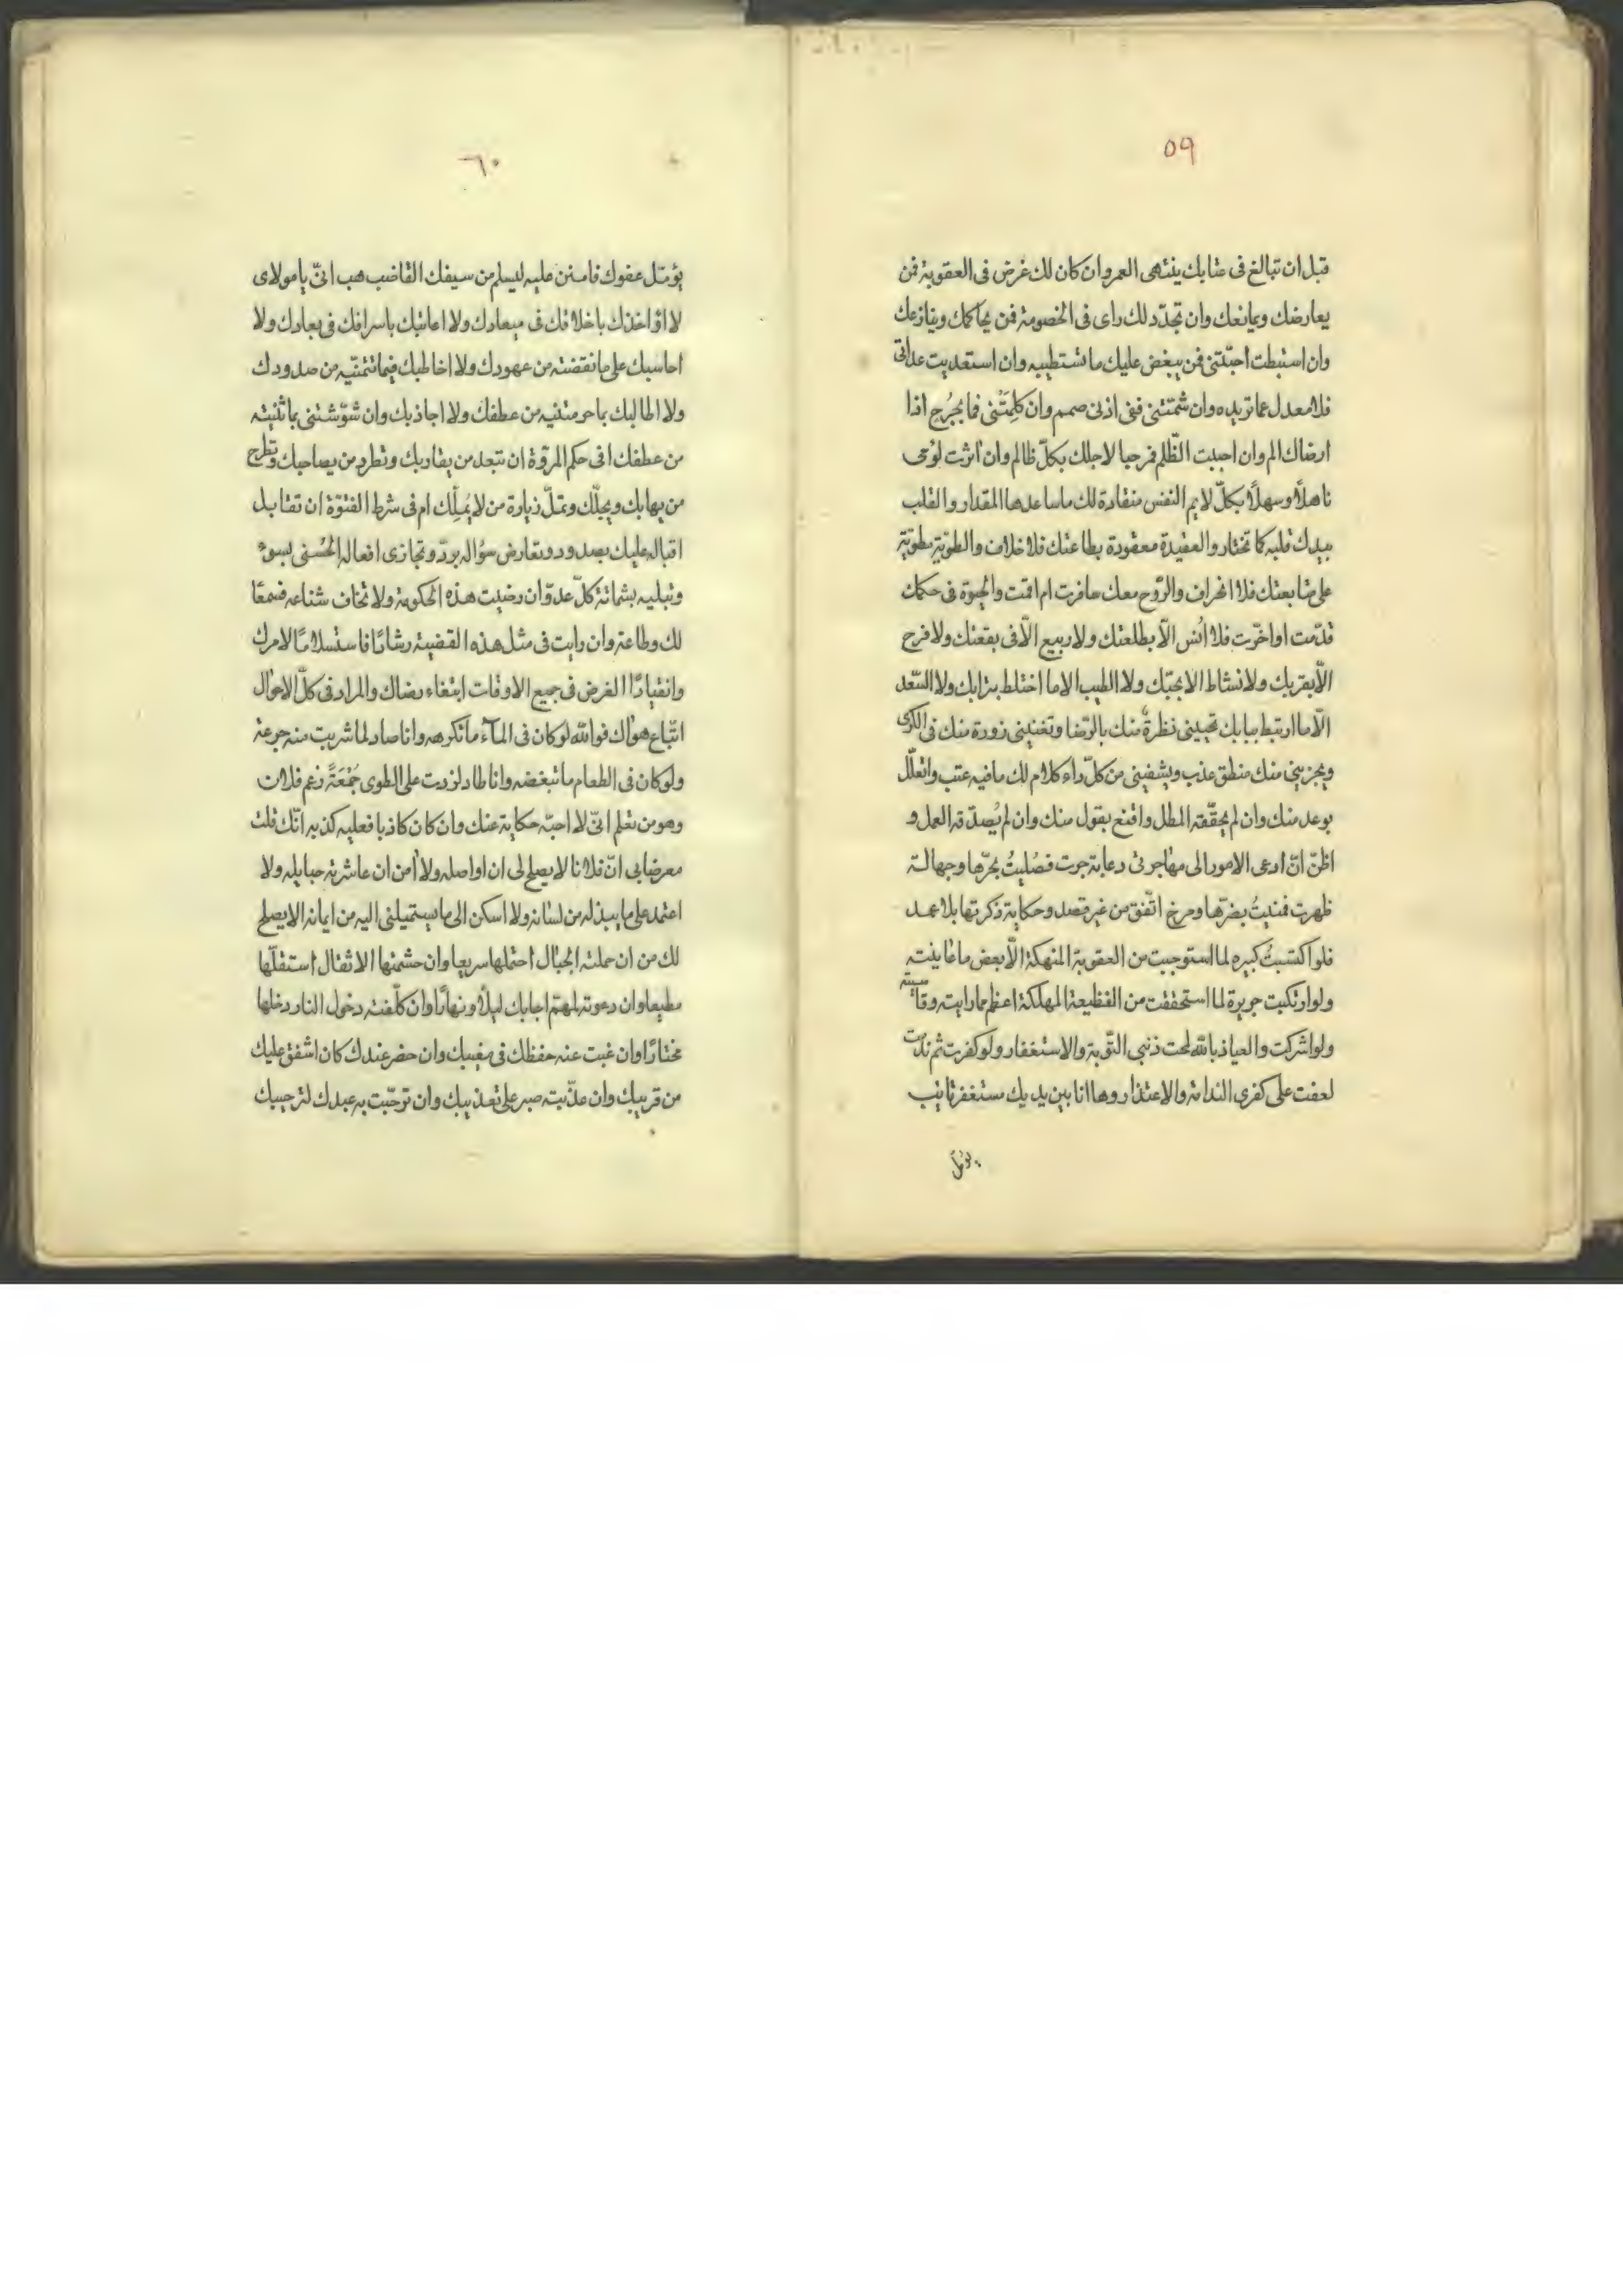 ٥٩
قبل ان تبالغ فى عتابك ينتهى العمر وان كان لك غرض فى العقوبة فمن
يعارضك ويمانعك وان تجدّد لك راى فى الخصومة فمن يحاكمك وينازعك
وان استبطت احبّتنى فمن يبغض عليك ما تستطيبه وان استعديت عداتى
فلا معدل عما تريده وان شمّتنى ففى اذنى صمم وان كلمتنى فما بجرح اذا
ارضاك الم وان احببت الظّلم فمرحبا لاجلك بكلّ ظالم وان اثرت لومى
فاهلاً وسهلاً بكلّ لايم النفس منقادة لك ما ساعدها المقدار والقلب
بيدك قلبه كما تختار والعقيدة معقودة بطاعتك فلا خلاف والطويّة مطويّة
على متابعتك فلا انحراف والرّوح معك سافرت ام اقمت والحيوة فى حكمك
قدّمت او اخّرت فلا انس الاّ بطلعتك ولا ربيع الاّ فى بقعتك ولا فرح
الاّ بقربك ولا نشاط الا بحبّك ولا الطيب الا ما اختلط بترابك ولا السّعد
الاّ ما ارتبط ببابك تحيينى نظرة منك بالرّضا وتغنينى زورة منك فى الكرى
ويجزينى منك منطق عذب ويشفينى من كلّ داء كلام لك ما فيه عتب واتعلّل
بوعد منك وان لم يحقّقه المطل واقنع بقول منك وان لم يُصدّقه العمل و
اظنّ انّ ادعى الامور الى مهاجرتى دعابة جرت فصُليتُ بحرّها وجهالة
ظهرت فمنيتُ بضرّها ومزح اتّفق من غير قصد وحكاية ذكرتها بلا عمد
فلو اكتسبتُ كبيره لما استوجبت من العقوبة المنهكة الاّ بعض ما عاينته
ولو ارتكبت جريرة لما استحققت من الفظيعة المهلكة اعظم مما رايته وقاسيته
ولو اشركت والعياذ بالله لمحت ذنبى التّوبة والاستغفار ولو كفرت ثم ندمت
لعفت على كفرى الندامة والاعتذار وها انا بين يديك مستغفر تايب
يؤمّل
٦٠
يؤمّل عفوك فامنن عليه ليسلم من سيفك القاضب هب انىّ يا مولاى
لا اؤاخذك باخلافك فى ميعادك ولا اعاتبك باسرافك فى بعادك ولا
احاسبك على ما نقضته من عهودك ولا اخاطبك فيما تتمنّيه من صدودك
ولا اطالبك بما حرمتنيه من عطفك ولا اجاذبك وان شوّشتنى بما ثنيته
من عطفك افى حكم المروّة ان تبعد من يقاربك وتطرد من يصاحبك وتطرح
من يهابك ويجلّك وتملّ زيارة من لا يملّك ام فى شرط الفتوّة ان تقابل
اقباله عليك بصدود وتعارض سؤاله بردّ وتجازى افعاله الحُسنى بسوء
وتبليه بشماتة كلّ عدوّ ان رضيت هذه الحكومة ولا تخاف شناعه فسمعًا
لك وطاعة وان رايت فى مثل هذه القضية رشادًا فاستسلامًا لامرك
وانقيادًا الغرض فى جميع الاوقات ابتغاء رضاك والمراد فى كلّ الاحوال
اتّباع هواك فوالله لو كان فى المآء ما تكرهه وانا صاد لما شربت منه جرعة
ولو كان فى الطعام ما تبغضه وانا طاو لزدت على الطوى جُمْعَةً زعم فلان
وهو من تعلم انىّ لا احبّه حكاية عنك وان كان كاذبا فعليه كذبه انّك قلت
معرضا بى انّ فلانا لا يصلح لى ان اواصله ولا أمن ان عاشرته حبايله ولا
اعتمد على ما يبذله من لسانه ولا اسكن الى ما يستميلنى اليه من ايمانه الا يصلح
لك من ان حملته الجبال احتملها سريعا وان حشمتها الاثقال استقلّها
مطيعا وان دعوته لمهمّ اجابك ليلاً ونهارًا وان كلّفته دخول النار دخلها
مختارًا وان غبت عنه حفظك فى مغيبك وان حضر عندك كان اشفق عليك
من قريبك وان عذّبته صبر على تعذيبك وان توجّبت به عبدك لترحيبك